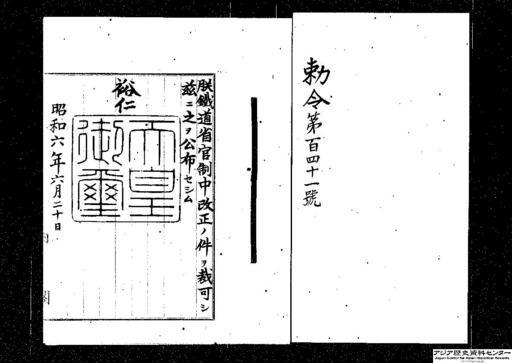 勅令第百四十一號
朕鐵道省官制中改正ノ件ヲ裁可シ
茲ニ之ヲ公布セシム
裕仁
天皇御璽
昭和六年六月二十日
アジア歴史資料センター
Japan Center for Asian Historical Records